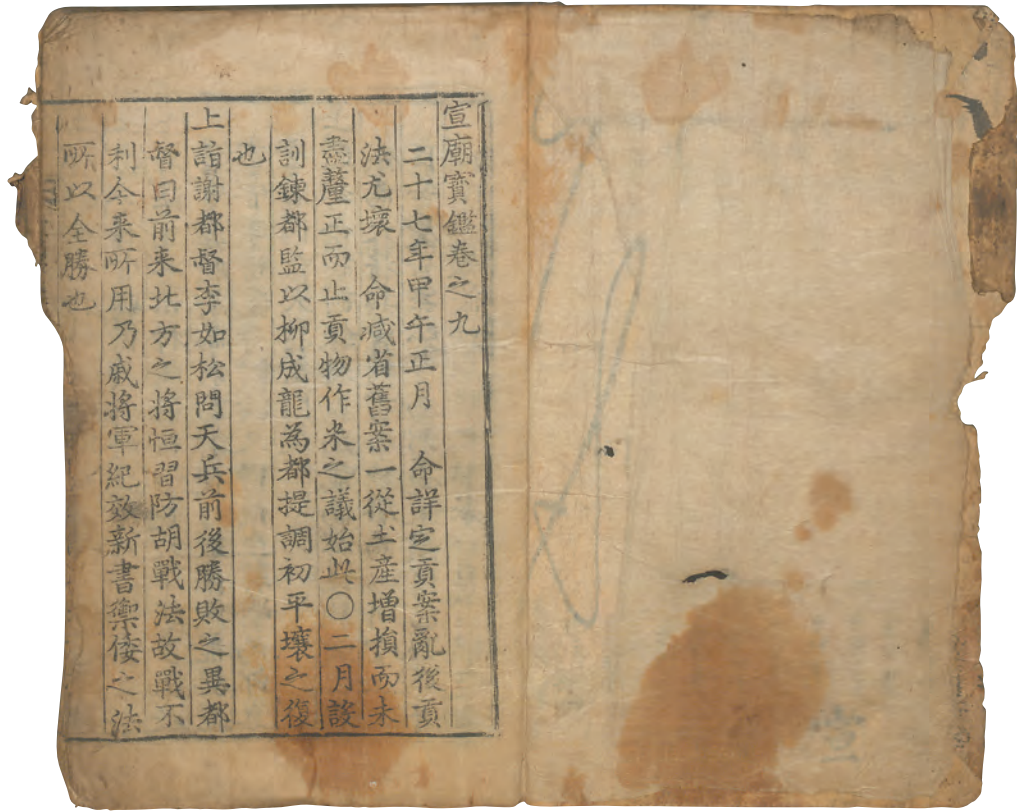 宣廟寶鑑卷之九
二十七年甲午正月 命詳定貢案亂後貢
法尤壞 命减省舊案一從土産增損而未
盡釐正而止貢物作米之議始此〇二月設
訓鍊都監以柳成龍為都提調初平壤之復
也
上詣謝都督李如松問天兵前後勝敗之異都
督曰前来北方之將恒習防胡戰法故戰不
利今来所用乃戚將軍紀效新書禦倭之法
所以全勝也